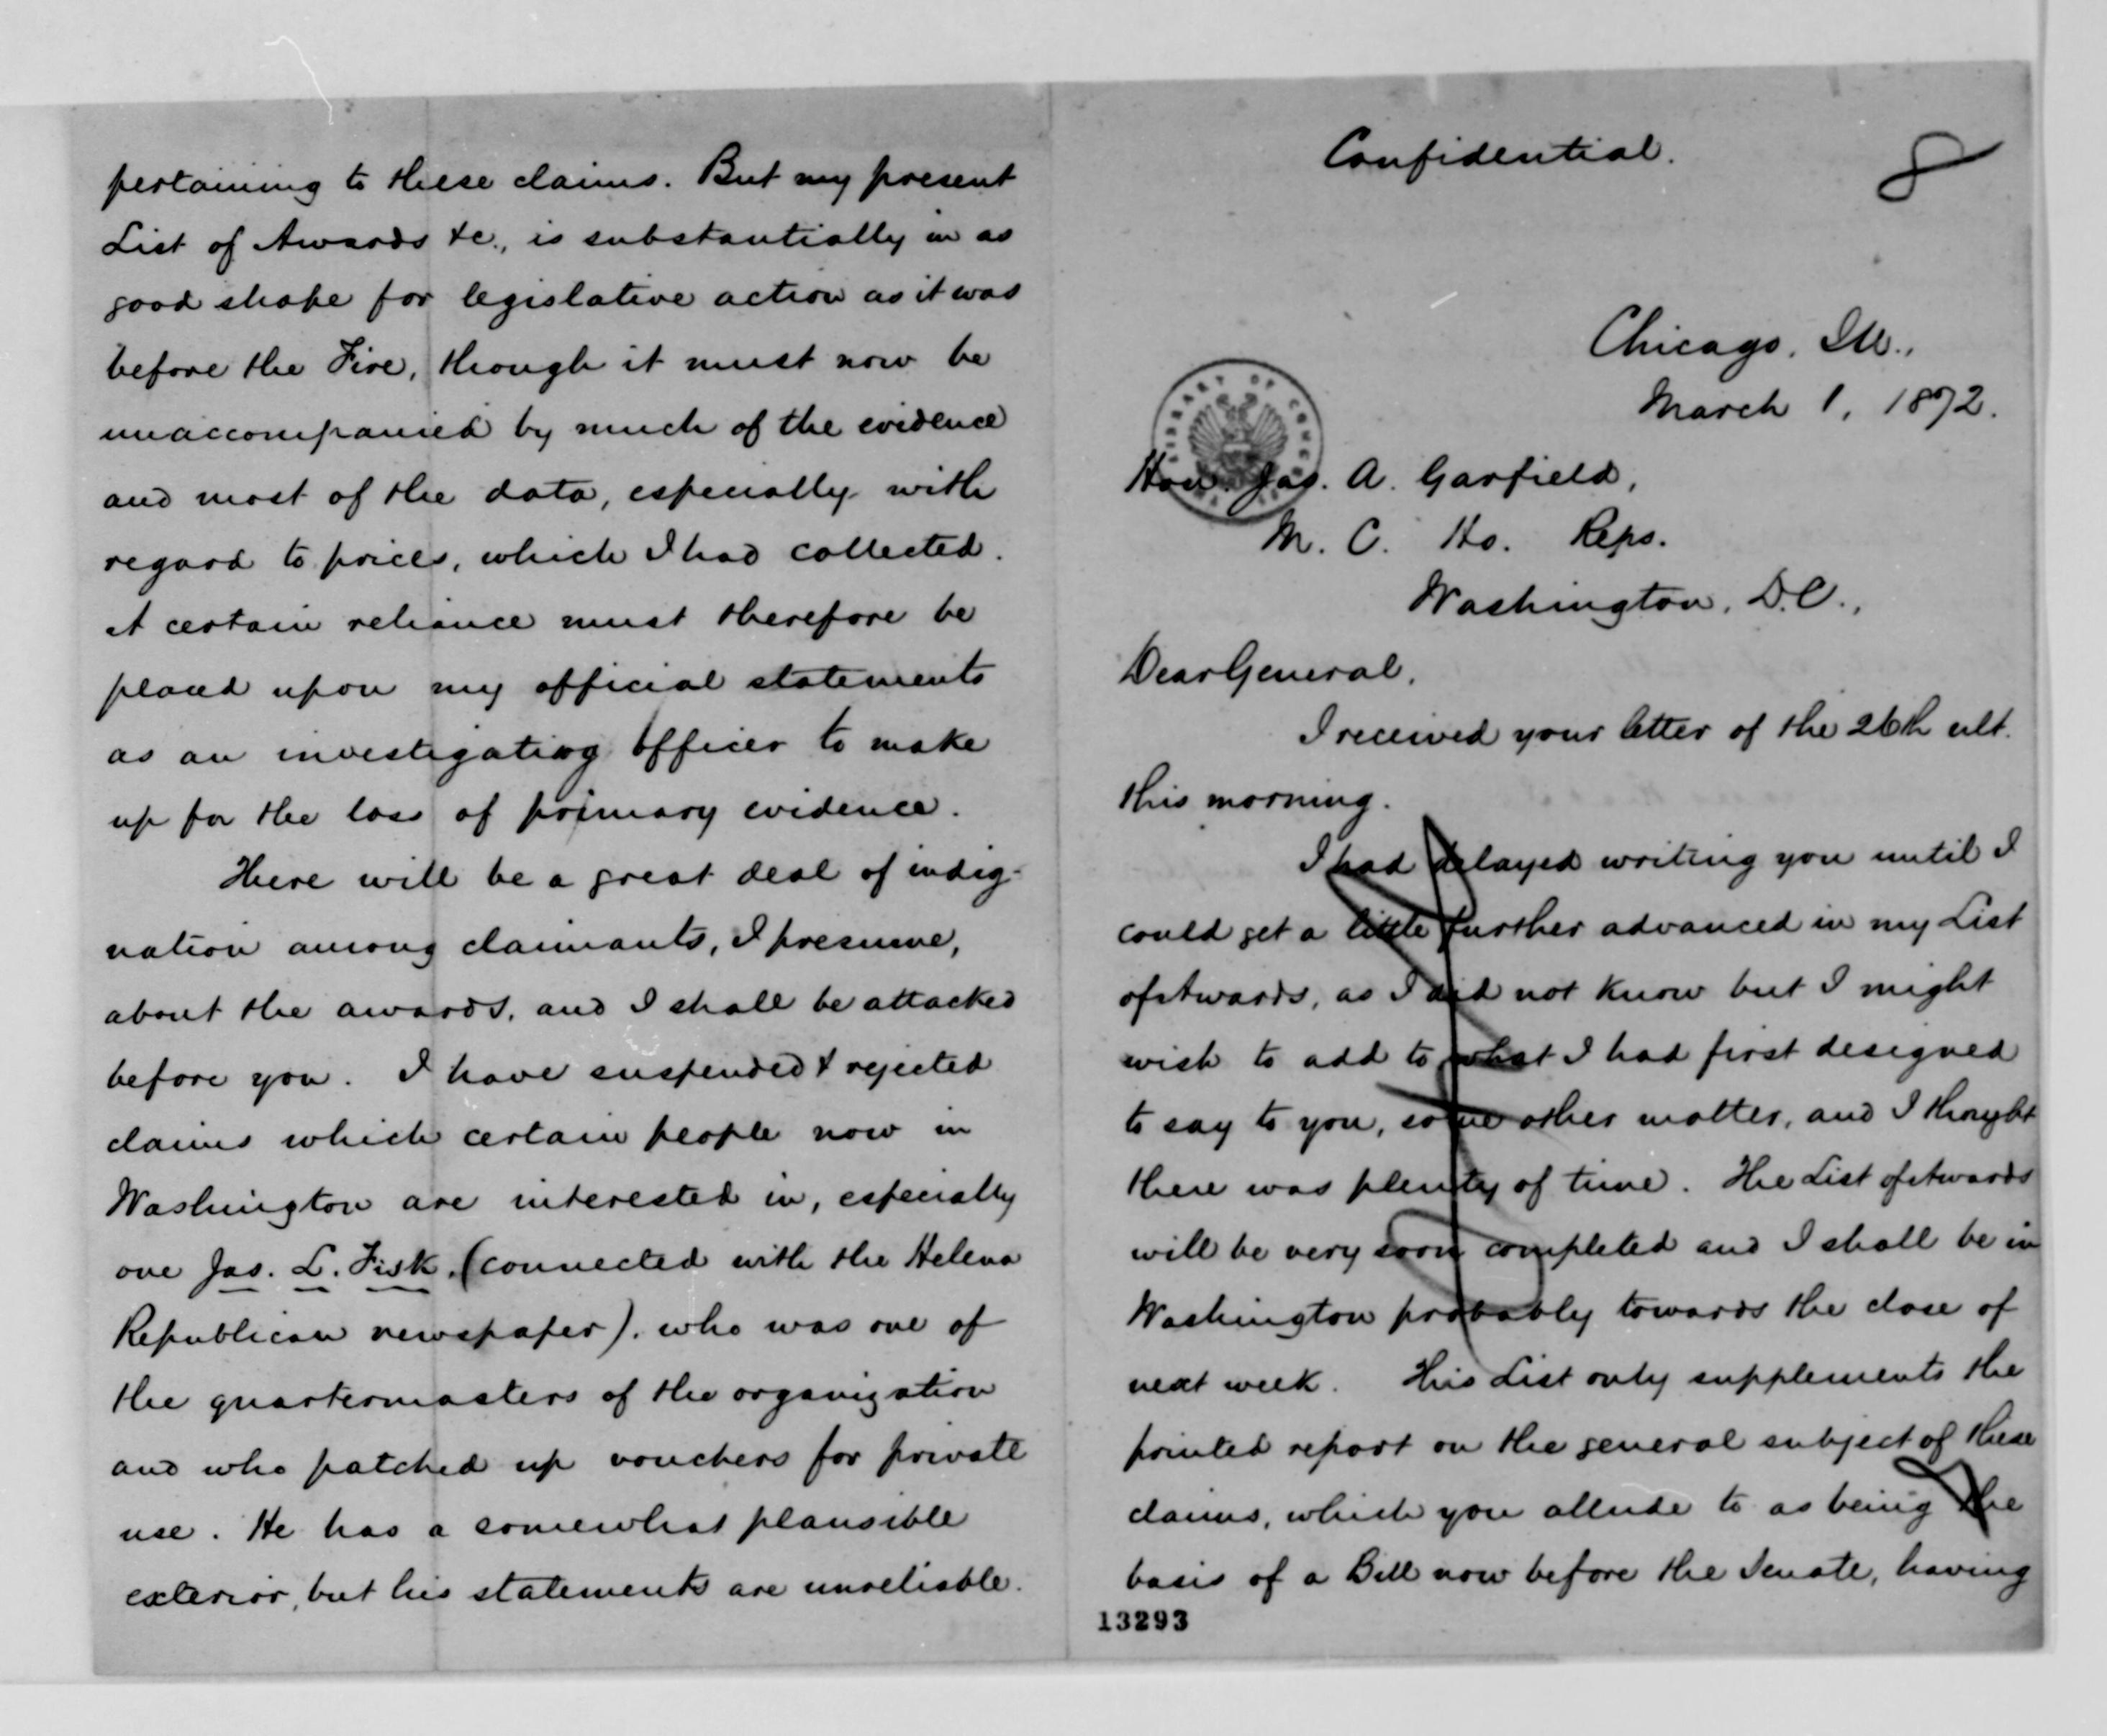 pertaining to these claims. But my present
List of Awards &c., is substantially in as
good shape for legislative action as it was
before the Fire, though it must now be
unaccompanied by much of the evidence
and most of the data, especially with
regard to prices, which I had collected.
A certain reliance must therefore be
placed upon my official statements
as an investigating officer to make
up for the loss of primary evidence.
There will be a great deal of indig-
nation among claimants, I presume,
about the awards, and I shall be attacked
before you. I have suspended & rejected
claims which certain people now in
Washington are interested in, especially
one Jas. L. Fisk, (connected with the Helena
Republican newspaper), who was one of
the quartermasters of the organization
and who patched up vouchers for private
use. He has a somewhat plausible
exterior, but his statements are unreliable.
Confidential.
8
Chicago, Ill.,
March 1, 1872.
LIBRARY OF CONGRESS
Hon. Jas. A. Garfield,
M. C. Ho. Reps.
Washington, D.C.,
Dear General,
I received your letter of the 26th ult.
this morning.
I had delayed writing you until I
could get a little further advanced in my List
of Awards, as I did not know but I might
wish to add to what I had first designed
to say to you, some other matter, and I thought
there was plenty of time. The List of Awards
will be very soon completed and I shall be in
Washington probably towards the close of
next week. This List only supplements the
printed report on the general subject of these
claims, which you allude to as being the
basis of a Bill now before the Senate, having
13293